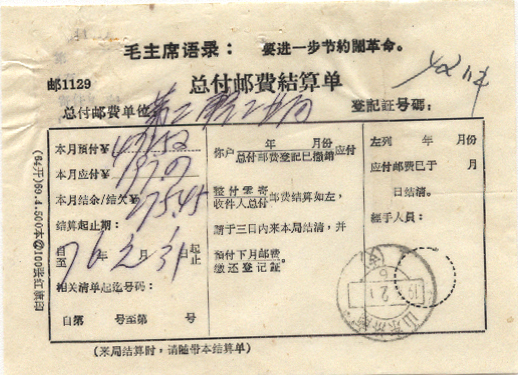 毛主席语录： 要进一步节約閙革命。
邮1129
总付邮费結算单
总付邮费单位
登記証号碼：
本月预付￥
本月应付￥
本月结余/结欠￥ 275.45
結算起止期：
自至 76年2月31日起止
相关清单起迄号码：
自第 号至第 号
你户 年 月份总付邮费登記已撤銷应付
整付零寄收件人总付邮费結算如左，
請于三日内来本局结清，并
预付下月邮费缴还登記証。
左列 年 月份
应付邮费已于 月
日结清。
經手人員：
(来局結算时，请随带本结算单)
(64开)69.4.500本@100张红旗印